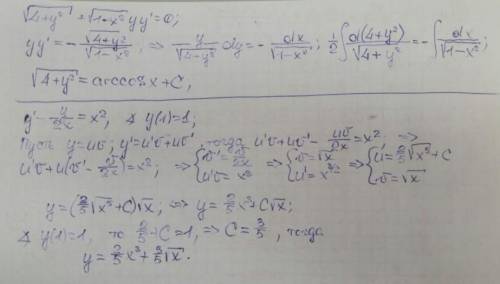 √4+y² + √1-x² yy' = 0;
yy' = - √4+y² / √1-x², ⇒ y/√4-y² dy = - dx/√1-x²; 1/2 ∫ d(4+y²)/√4+y² = - ∫ dx/√1-x²;
√4+y² = arccos x + C,
y' - y/2x = x², ∢ y(1)=1;
Пусть y=uv; y'=u'v+uv', тогда u'v+uv' - uv/2x = x² ⇒
u'v+u(v' - v/2x) = x²; ⇒ { v' = v/2x u'v = x² ⇒ { v = √x u' = x^3/2 ⇒ { u = 2/5 √x⁵ + C v = √x
y = (2/5 √x⁵ + C)√x; ⇒ y = 2/5 x³ + C√x;
∢ y(1)=1, то 2/5 + C = 1, ⇒ C = 3/5, тогда
y = 2/5 x³ + 3/5 √x.